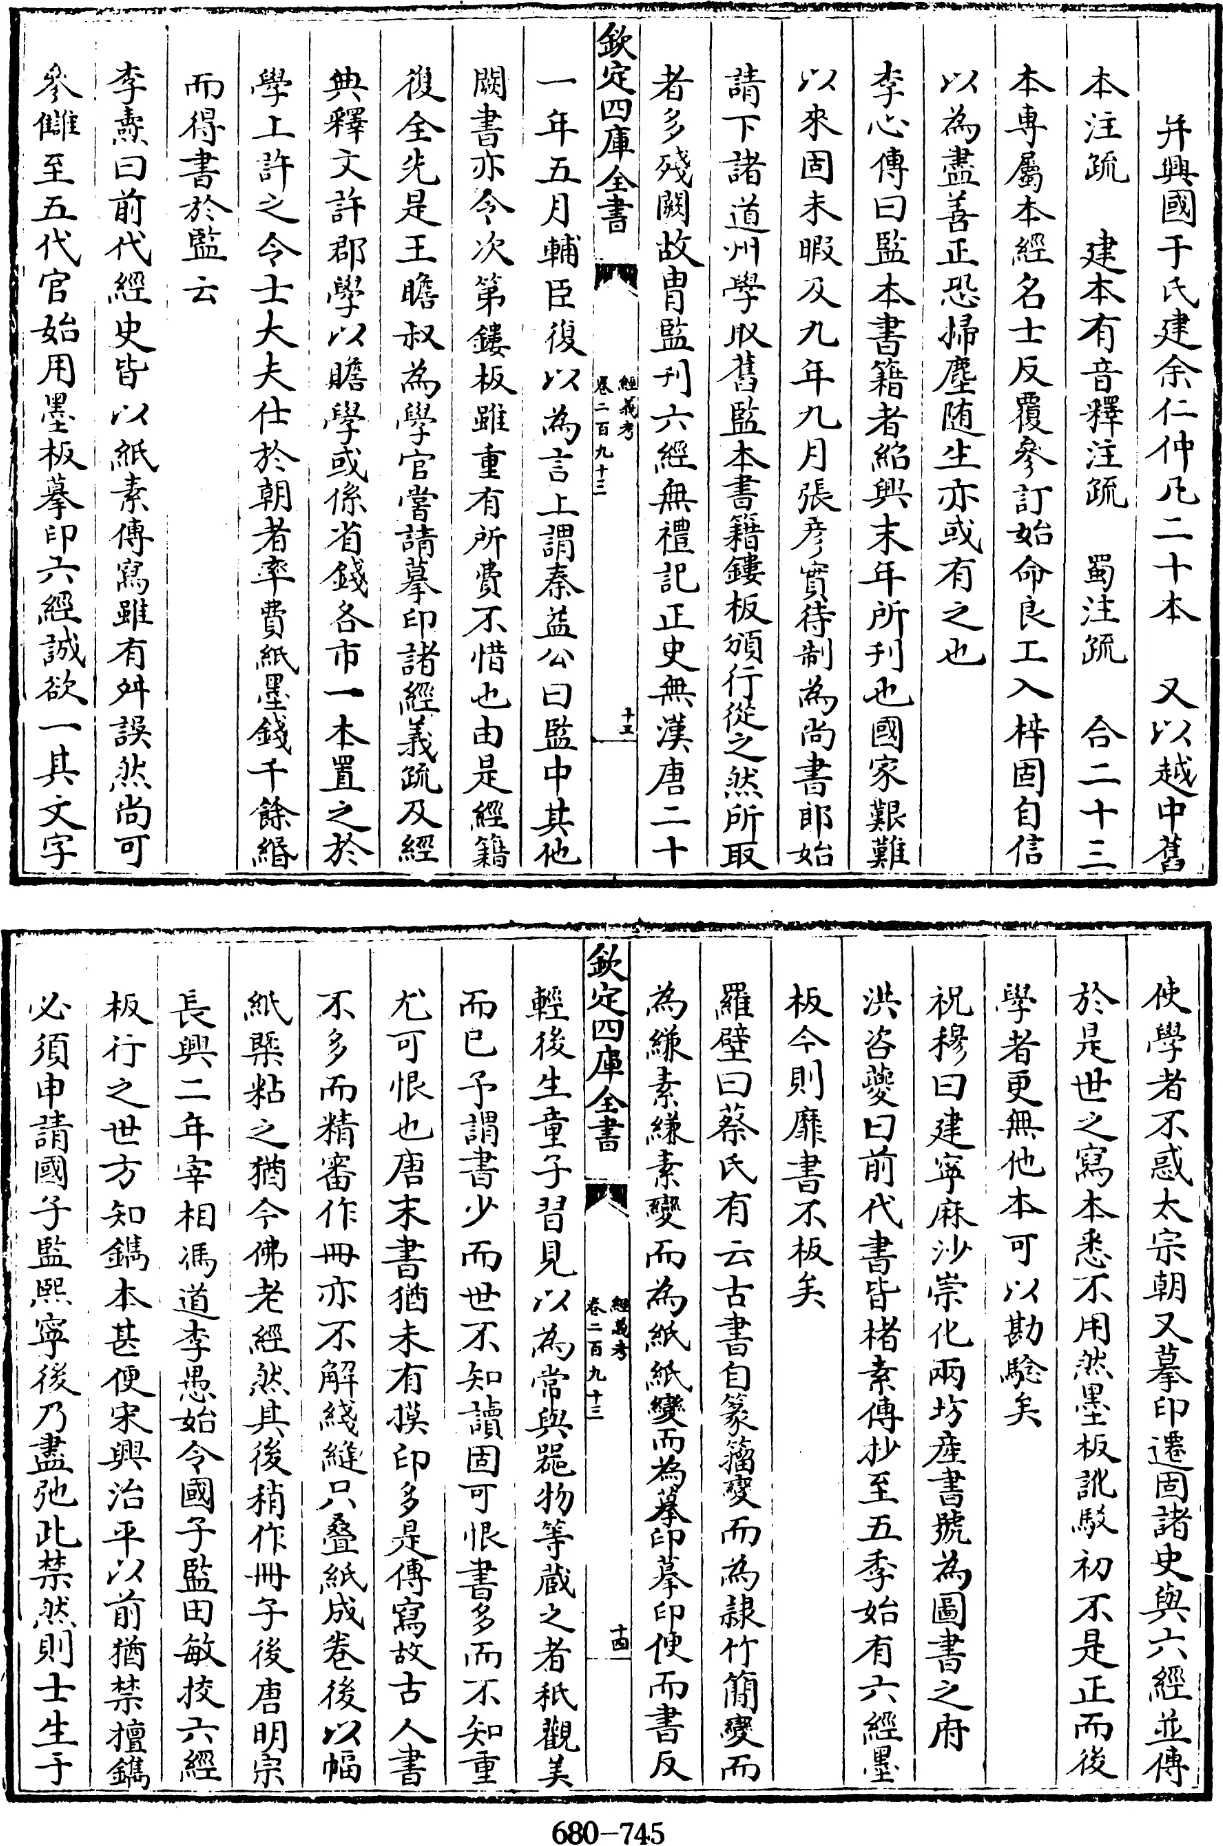 并興國于氏建余仁仲凡二十本　又以越中舊
本注疏　建本有音釋注疏　蜀注疏　合二十三
本専屬本經名士反覆參訂始命良工入梓固自信
以為盡善正恐掃塵随生亦或有之也
李心傳曰監本書籍者紹興末年所刊也國家艱難
以來固未暇及九年九月張彦實待制為尚書郎始
請下諸道州學取舊監本書籍鏤板頒行從之然所取
者多殘闕故胄監刊六經無禮記正史無漢唐二十
欽定四庫全書
經義考
卷二百九十三
十三
一年五月輔臣復以為言上謂秦益公曰監中其他
闕書亦令次第鏤板雖重有所費不惜也由是經籍
復全先是王瞻叔為學官嘗請摹印諸經義疏及經
典釋文許郡學以贍學或係省錢各市一本置之於
學上許之今士大夫仕於朝者率費紙墨錢千餘緡
而得書於監云
李燾曰前代經史皆以紙素傳寫雖有舛誤然尚可
參讎至五代官始用墨板摹印六經誠欲一其文字
使學者不惑太宗朝又摹印遷固諸史與六經並傳
於是世之寫本悉不用然墨板訛駮初不是正而後
學者更無他本可以勘驗矣
祝穆曰建寧麻沙崇化兩坊産書號為圖書之府
洪咨夔曰前代書皆楮素傳抄至五季始有六經墨
板今則靡書不板矣
羅璧曰蔡氏有云古書自篆籀變而為隷竹簡變而
為縑素縑素變而為紙紙變而為摹印摹印便而書反
欽定四庫全書
經義考
卷二百九十三
十四
輕後生童子習見以為常與器物等藏之者秖觀美
而已予謂書少而世不知讀固可恨書多而不知重
尤可恨也唐末書猶未有摸印多是傳寫故古人書
不多而精審作冊亦不解綫縫只叠紙成卷後以幅
紙槩粘之猶今佛老經然其後稍作冊子後唐明宗
長興二年宰相馮道李愚始令國子監田敏挍六經
板行之世方知鐫本甚便宋興治平以前猶禁擅鐫
必須申請國子監熙寧後乃盡弛此禁然則士生于
680-745